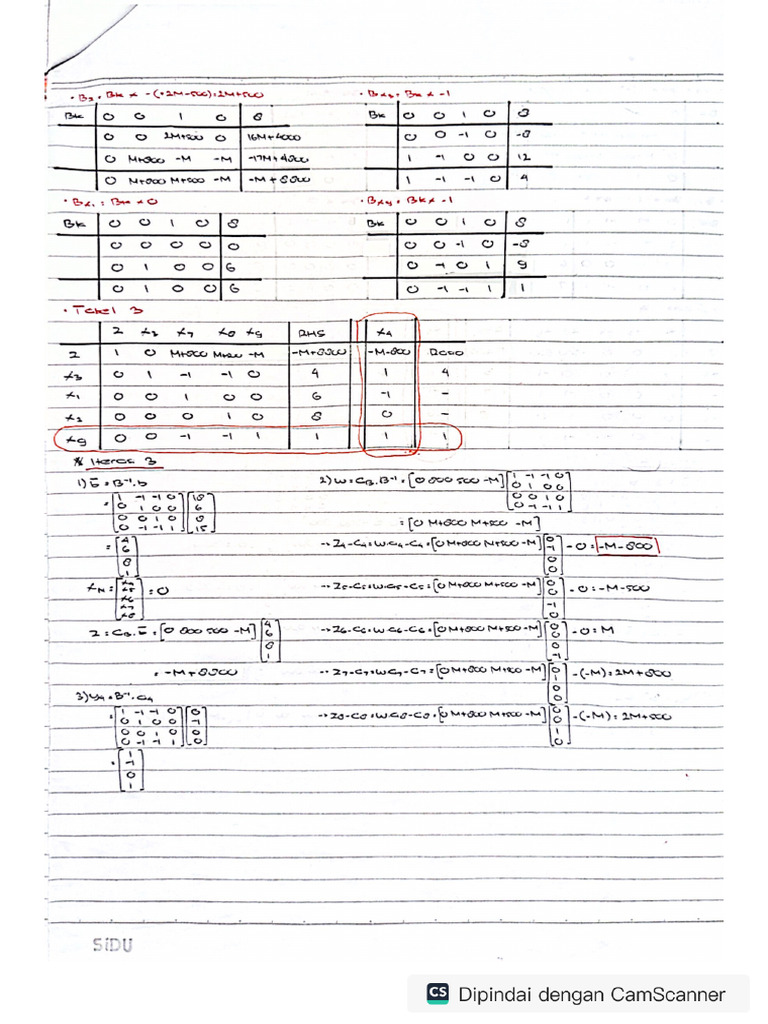 • B2 = BK x -(-2M-500) = 2M+500
BK 0 0 1 0 8
0 0 2M+500 0 16M+4000
0 M+800 -M -M -17M+4800
0 M+800 M+500 -M -M+8800
• Bx3 = BK x -1
BK 0 0 1 0 8
0 0 -1 0 -8
1 -1 0 0 12
1 -1 -1 0 4
• Bx1 = BK x 0
BK 0 0 1 0 8
0 0 0 0 0
0 1 0 0 6
0 1 0 0 6
• Bx9 = BK x -1
BK 0 0 1 0 8
0 0 -1 0 -8
0 -1 0 1 9
0 -1 -1 1 1
• Tabel 3
Z x3 x7 x8 x9 RHS x4
Z 1 0 M+800 M+500 -M -M+8800 -M-800
x3 0 1 -1 -1 0 4 1 4
x1 0 0 1 0 0 6 -1 -
x2 0 0 0 1 0 8 0 -
x9 0 0 -1 -1 1 1 1 1
* Iterasi 3
1) b̅ = B⁻¹.b
= [1 -1 -1 0] [18]
[0 1 0 0] [6]
[0 0 1 0] [8]
[0 -1 -1 1] [15]
= [4]
[6]
[8]
[1]
xN = [x4]
[x5]
[x6]
[x7]
[x8] = 0
Z = CB.b̅ = [0 800 500 -M] [4]
[6]
[8]
[1]
= -M+8800
2) W = CB.B⁻¹ = [0 800 500 -M] [1 -1 -1 0]
[0 1 0 0]
[0 0 1 0]
[0 -1 -1 1]
= [0 M+800 M+500 -M]
→ Z4-C4 = Wa4-C4 = [0 M+800 M+500 -M] [0]
[-1]
[0]
[0] - 0 = -M-800
→ Z5-C5 = Wa5-C5 = [0 M+800 M+500 -M] [0]
[0]
[-1]
[0] - 0 = -M-500
→ Z6-C6 = Wa6-C6 = [0 M+800 M+500 -M] [0]
[0]
[0]
[-1] - 0 = M
→ Z7-C7 = Wa7-C7 = [0 M+800 M+500 -M] [0]
[1]
[0]
[0] -(-M) = 2M+800
→ Z8-C8 = Wa8-C8 = [0 M+800 M+500 -M] [0]
[0]
[1]
[0] -(-M) = 2M+500
3) y4 = B⁻¹.a4
= [1 -1 -1 0] [0]
[0 1 0 0] [-1]
[0 0 1 0] [0]
[0 -1 -1 1] [0]
= [1]
[-1]
[0]
[1]
SiDU
CS Dipindai dengan CamScanner